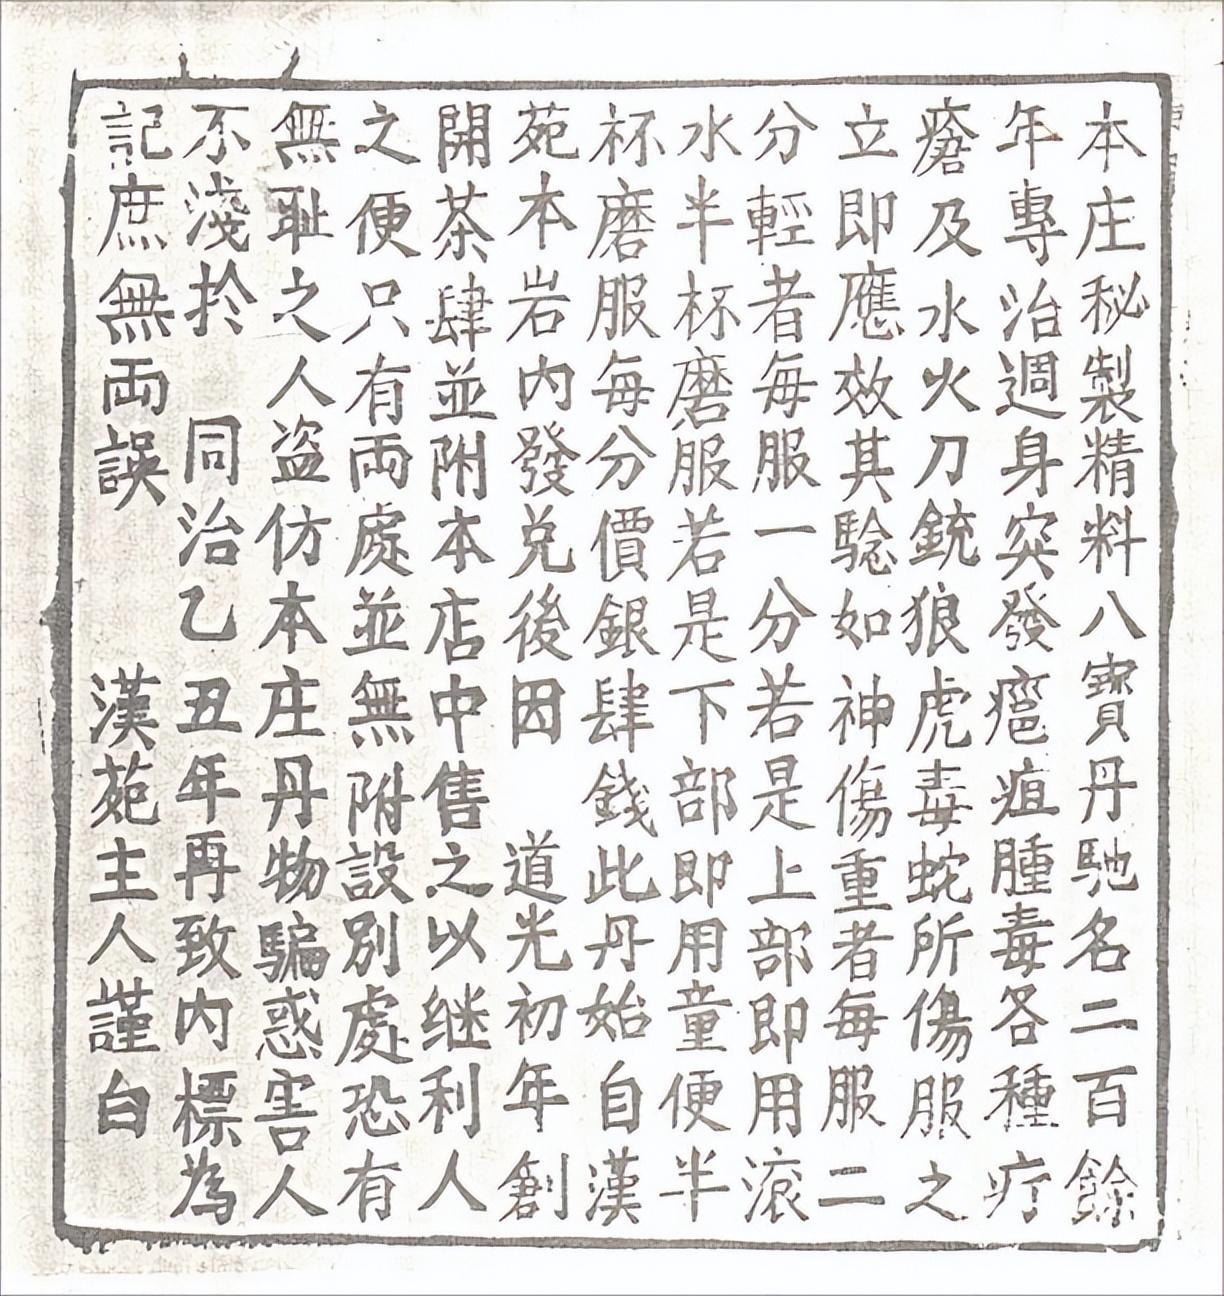 本庄秘製精料八寶丹馳名二百餘
年專治週身突發瘟疽腫毒各種疔
瘡及水火刀銃狼虎毒蛇所傷服之
立即應效其騐如神傷重者每服二
分輕者每服一分若是上部即用滚
水半杯磨服若是下部即用童便半
杯磨服每分價銀肆錢此丹始自漢
苑本岩内發兌後因 道光初年創
開茶肆並附本店中售之以継利人
之便只有両處並無附設別處恐有
無耻之人盗仿本庄丹物騙惑害人
不淺扵 同治乙丑年再致内標為
記庶無両誤 漢苑主人謹白